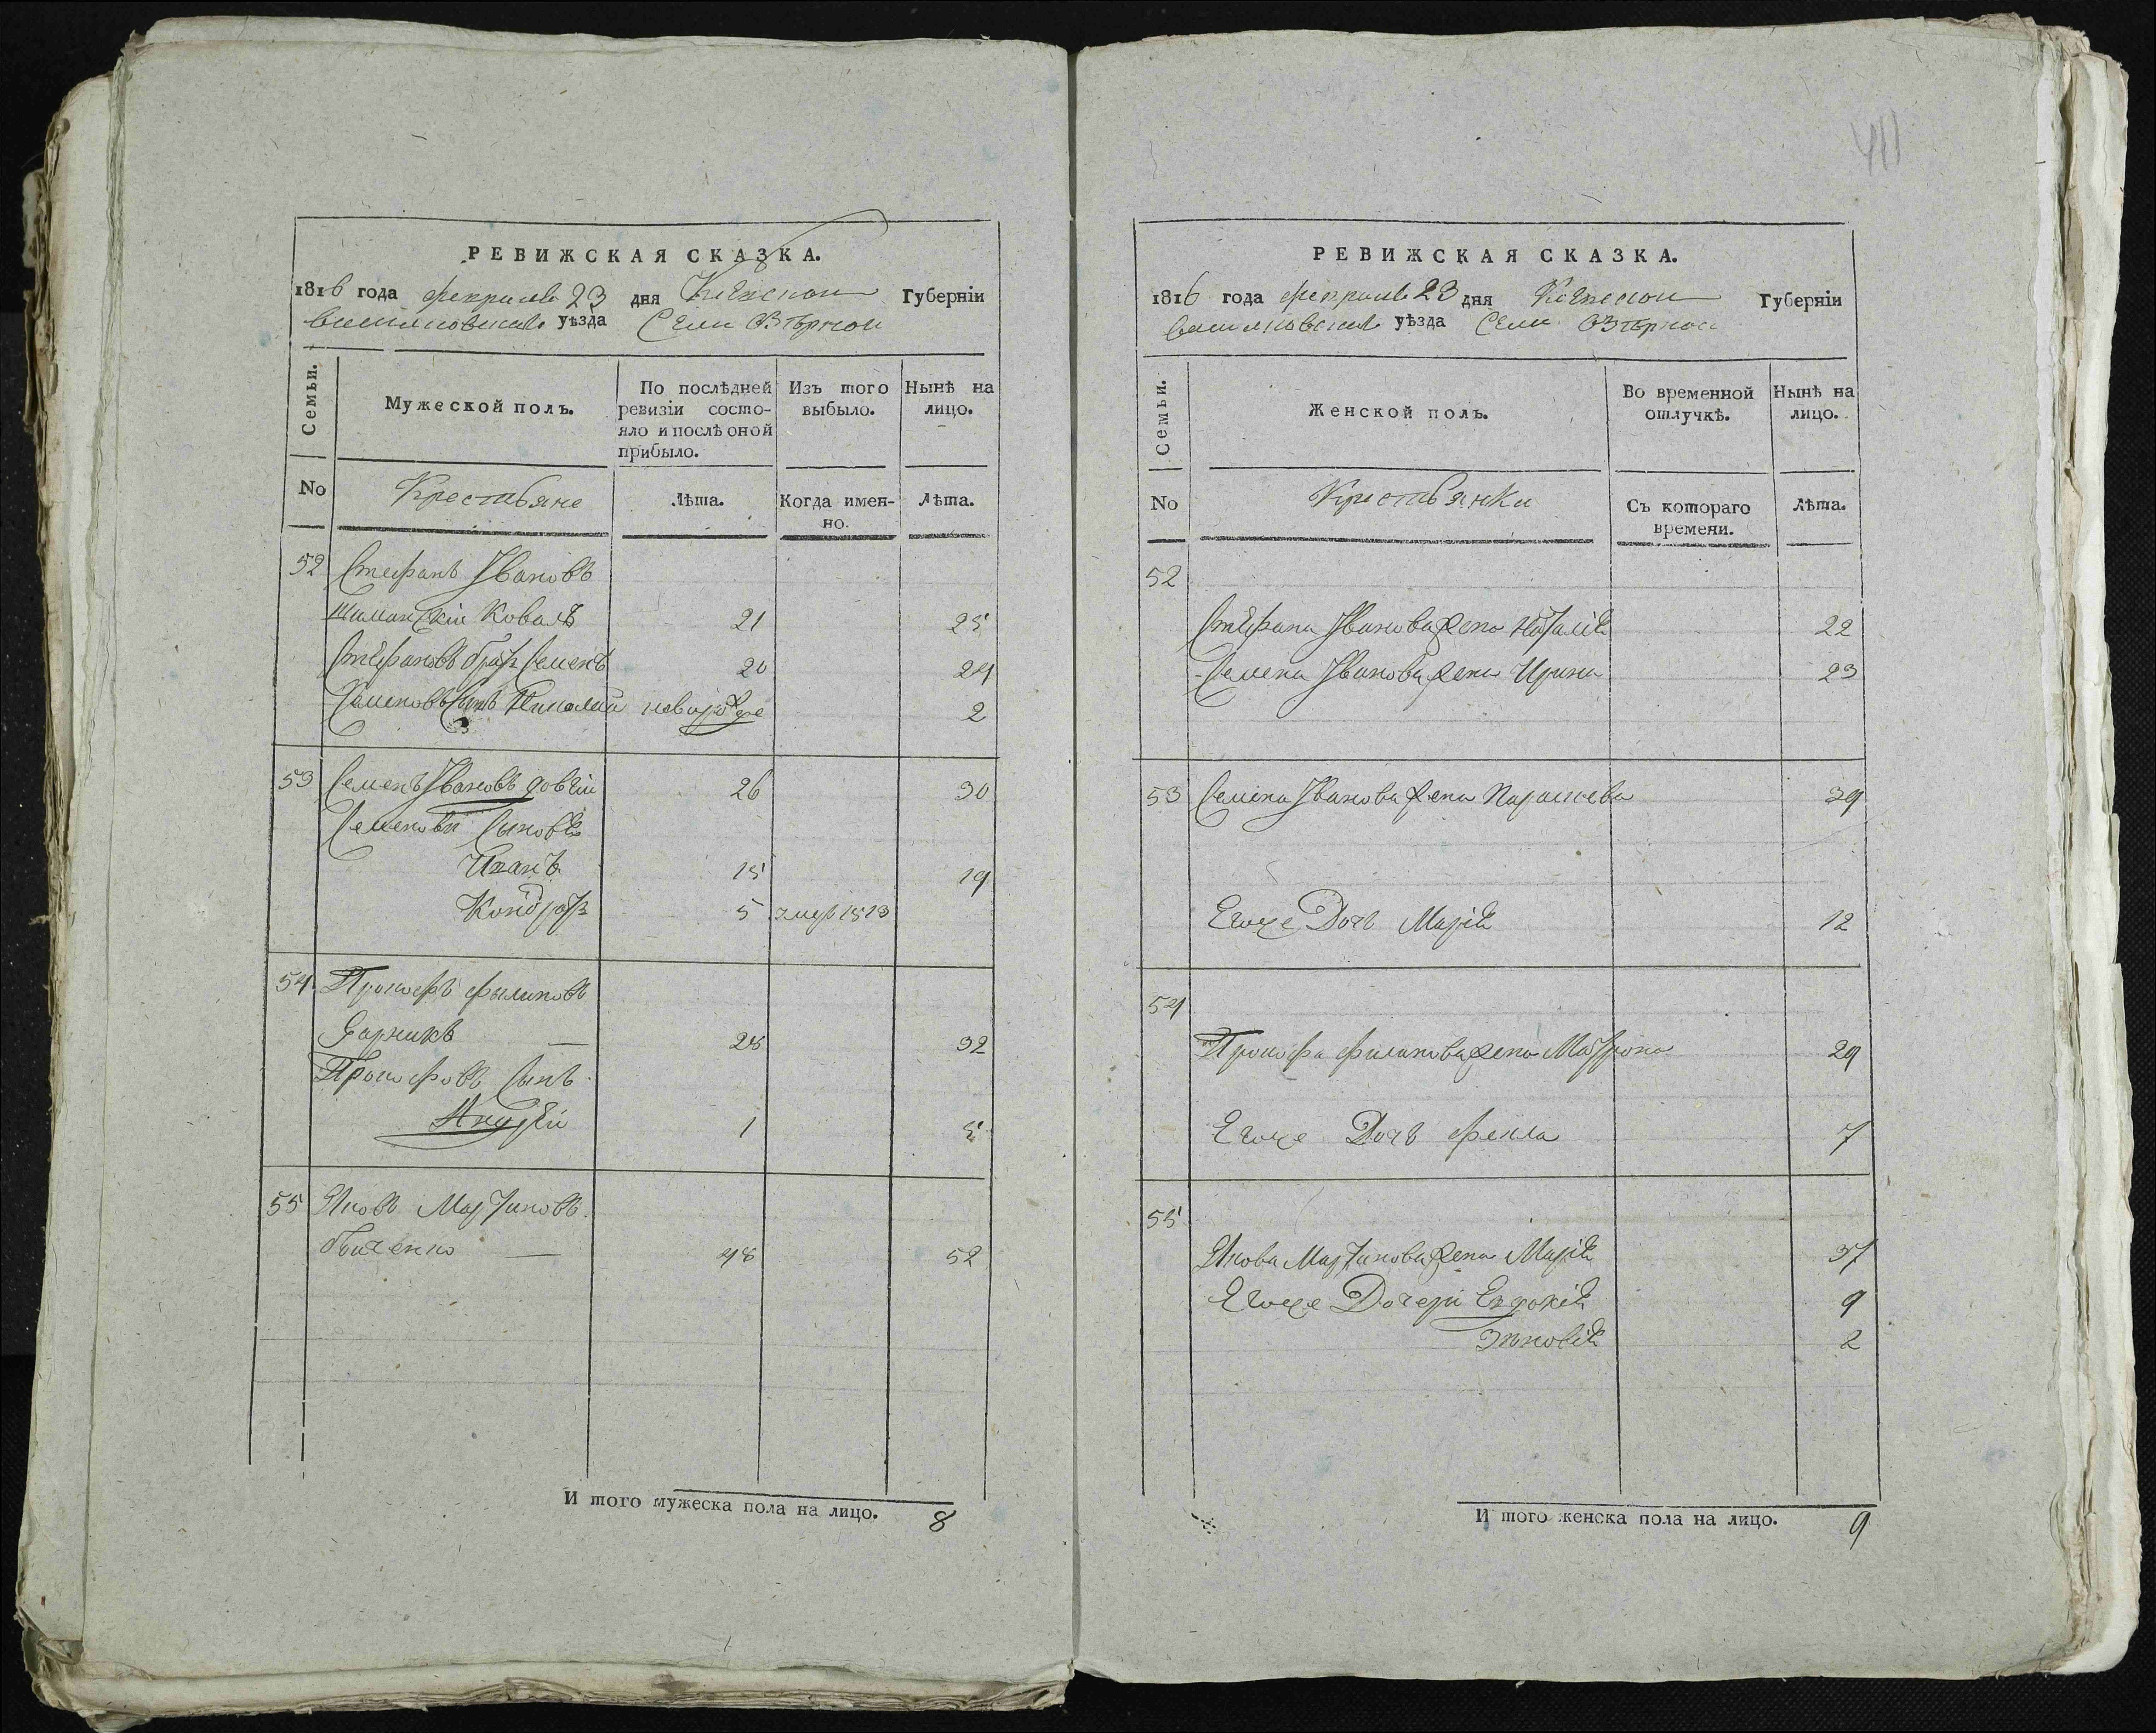 РЕВИЖСКАЯ СКАЗКА.
1816 года февраля 23 дня Киевской Губерніи
васильковскаго уѣзда Села Озѣрной
Семьи.
Мужеской полъ.
По послѣдней ревизіи состо-
яло и послѣ оной
прибыло.
Изъ того
выбыло.
Нынѣ на
лицо.
No
Крестьяне
Лѣта.
Когда имен-
но.
Лѣта.
52 Стефанъ Ивановъ
Коваль 21 25
Стефановъ братъ Семенъ 20 24
Семеновъ сынъ Николай 2
53 Семенъ Ивановъ 26 30
Семеновы сыновья
Иванъ 15 19
Кондратъ 5 умер 1813
54 Прокофъ
28 32
Прокофовъ сынъ
Андрей 1 5
55 Яковъ Мартиновъ
48 52
И того мужеска пола на лицо. 8
411
РЕВИЖСКАЯ СКАЗКА.
1816 года февраля 23 дня Киевской Губерніи
васильковскаго уѣзда Села Озѣрной
Семьи.
Женской полъ.
Во временной
отлучкѣ.
Нынѣ на
лицо.
No
Крестьянки
Съ котораго
времени.
Лѣта.
52
Стефана Иванова жена Наталія 22
Семена Иванова жена Ирина 23
53 Семена Иванова жена Параскева 39
Егоже Дочь Марія 12
54
Прокофа Филипова жена Матрона 29
Егоже Дочь Фекла 7
55
Якова Мартинова жена Марія 37
Егоже Дочери Евдокія 9
Зѣновія 2
И того женска пола на лицо. 9